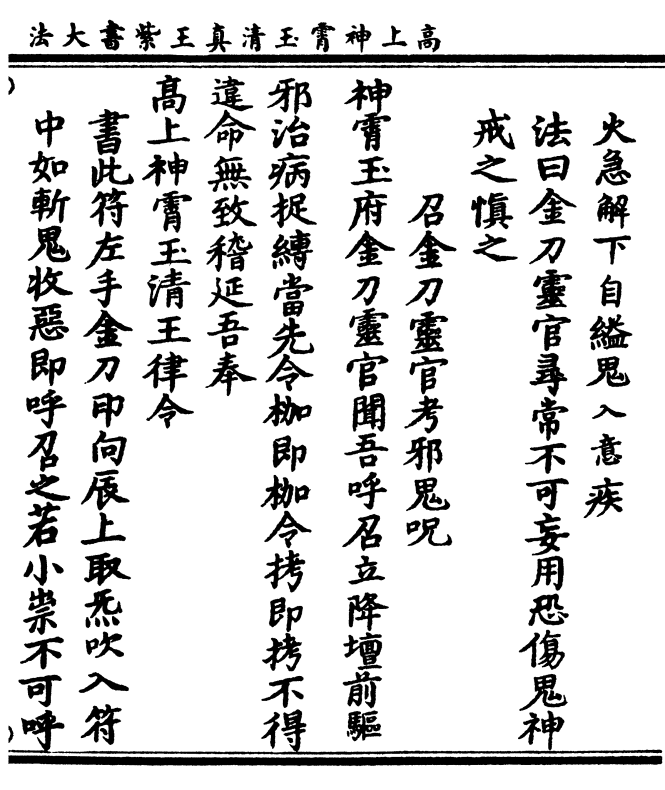 高上神霄玉清真王紫書大法
火急解下自縊鬼入意疾
法曰金刀靈官尋常不可妄用恐傷鬼神
戒之慎之
召金刀靈官考邪鬼呪
神霄玉府金刀靈官聞吾呼召立降壇前驅
邪治病捉縛當先令枷即枷令拷即拷不得
違命無致稽延吾奉
高上神霄玉清王律令
書此符左手金刀印向辰上取炁吹入符
中如斬鬼收惡即呼召之若小祟不可呼